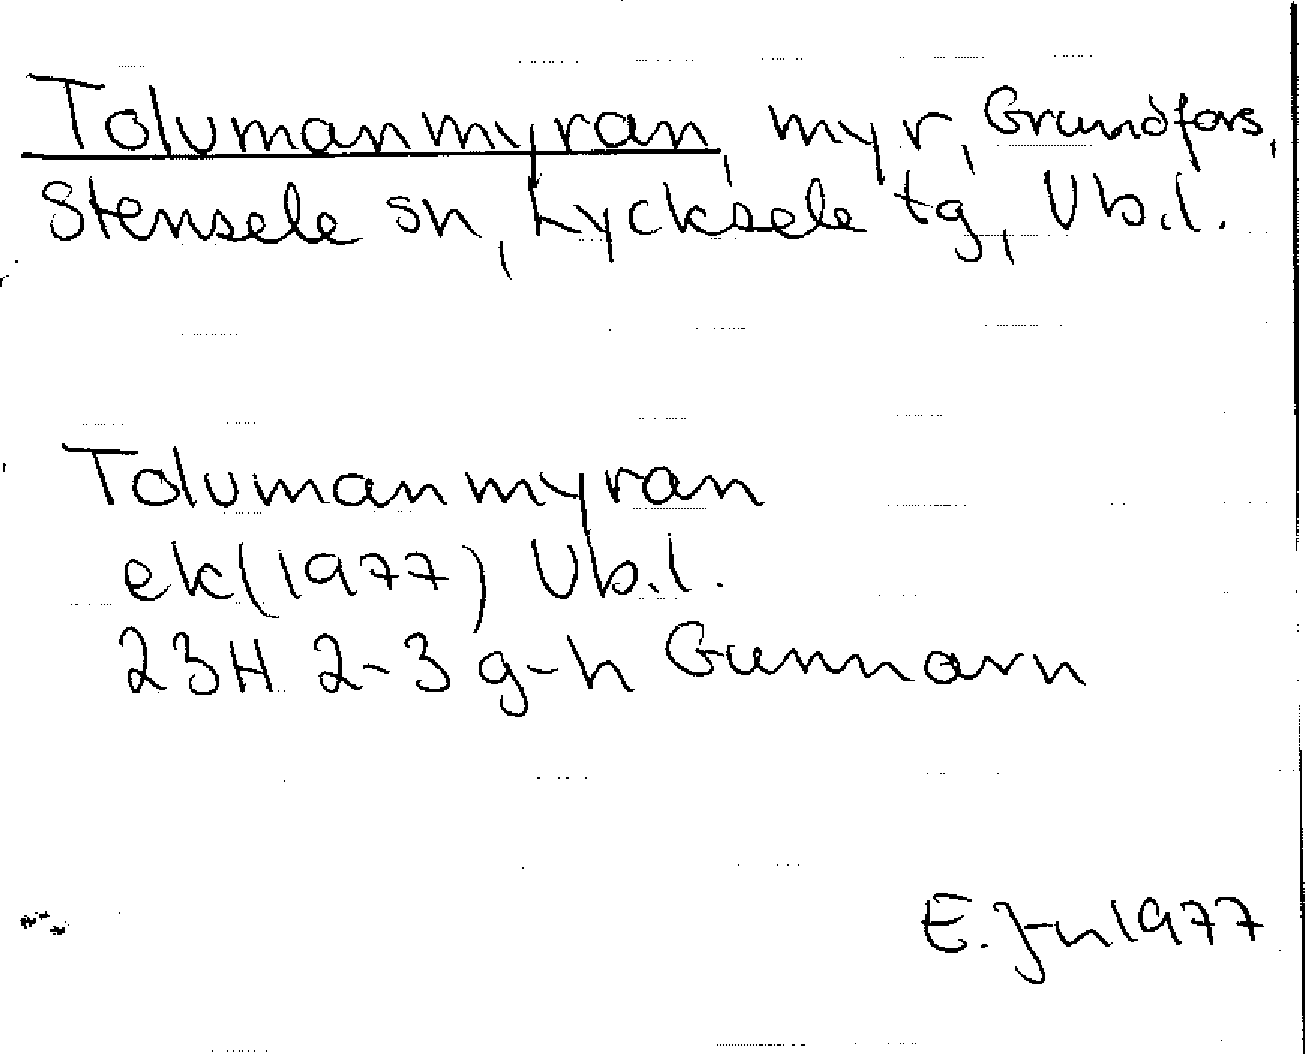 Tolvmanmyran, myr, Grundfors,
Stensele sn, Lycksele tg, Vb.l.
Tolvmanmyran
ek(1977) Vb.l.
23H 2-3 g-h Gunnarn
E. J-n 1977